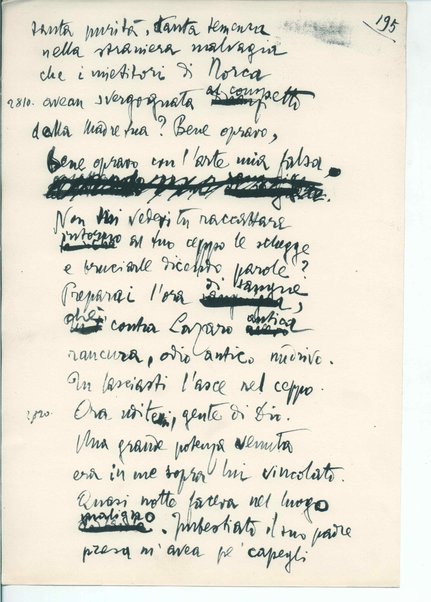 195
santa purità, tanta temenza
nella straniera malvagia
che i mietitori di Norca
2810. avean svergognata al conspetto
della madre tua? Bene opravo,
bene opravo con l'arte mia falsa.
Non mi vedevi tu raccattare
intorno al tuo ceppo le schegge
e bruciarle dicendo parole?
Preparai l'ora di sangue
ché contra Lazaro antica
rancura, odio antico nudrivo.
Tu lasciasti l'asce nel ceppo.
2820. Ora uditemi, gente di Dio.
Una grande potenza venuta
era in me sopra lui vincolato.
Quasi notte faceva nel luogo
maligno. Imbestiato il suo padre
presa m'avea pe' capegli